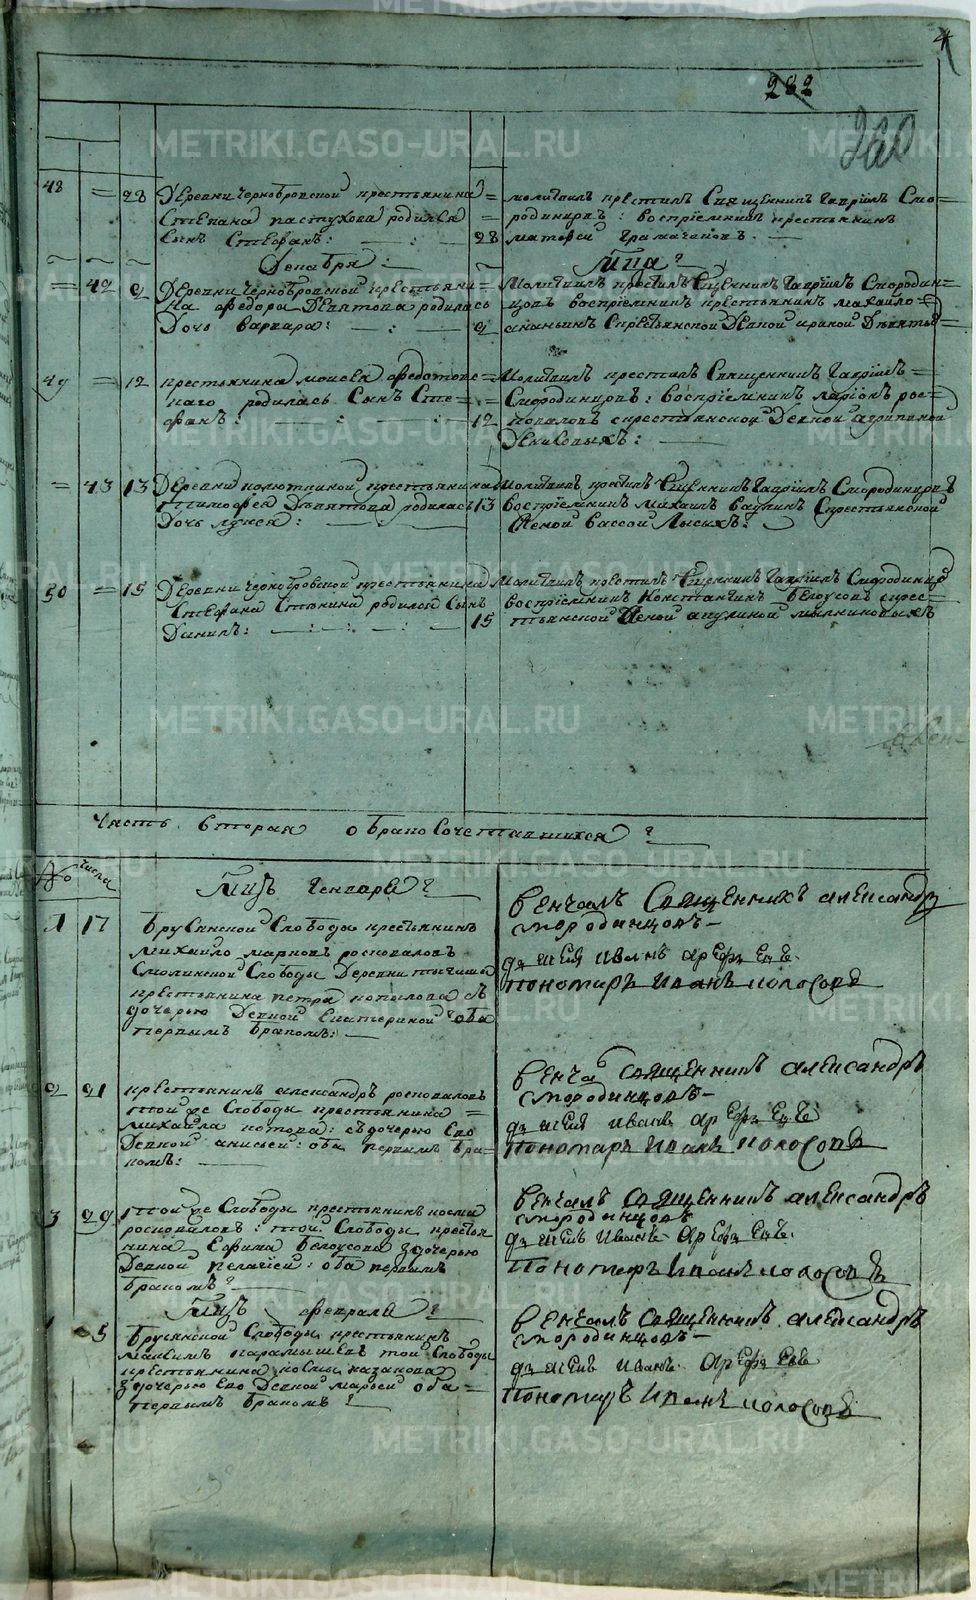 4
282
280
METRIKI.GASO-URAL.RU
48 = 28 Деревни Чернобровской крестьянина
Степана Пастухова родился
сынъ Стефанъ:
= молитвилъ крестилъ Священникъ Гаврiилъ Смо-
родинцовъ: воспрiемникъ крестьянинъ
28 Матфей
Декабря
Мца
= 42 2 Деревни Чернобровской крестьяни-
на Федора Девятова родилась
дочь Варвара:
Молитвилъ крестилъ Сщенникъ Гаврiилъ Смородин-
цовъ воспрiемникъ крестьянинъ Михайло
2 Ананьинъ с крестьянской девкой Ириной
49 = 12 крестьянина Моисея Федотовс-
каго родилась сынъ Сте-
фанъ:
Молитвилъ крестилъ Священникъ Гаврiилъ
Смородинцовъ: воспрiемникъ Ларiонъ Рос-
12 коваловъ с крестьянской девкой Агрипиной
= 43 13 Деревни Полюткиной крестьянина
Тимофея Девятова родилась
дочь
Молитвилъ крестилъ Сщенникъ Гаврiилъ Смородинцовъ
13 воспрiемникъ Михаилъ Ваулинъ с крестьянской
женой Вассой Лысихъ:
50 = 15 Деревни Чернобровской крестьянина
Стефана Стенина родился сынъ
Данилъ:
Молитвилъ крестилъ Сщенникъ Гаврiилъ Смородинцовъ
воспрiемникъ Константинъ Белоусовъ с крес-
15 тьянской женой Акулиной Мыльниковыхъ
Часть вторая о бракосочетавшихся
No числа
Мцъ Генварь
1 17 Брусянской слободы крестьянинъ
Михайло Марковъ Росковаловъ
Смолинской слободы деревни
крестьянина Петра Копылова съ
дочерью девкой Екатериной оба
первымъ бракомъ:
Венчалъ Священникъ Александръ
Смородинцовъ
дьячекъ Иванъ Арефьевъ
Пономаръ Иванъ Колосовъ
2 21 крестьянинъ Александръ Росковаловъ
той же слободы крестьянина
Михайла Котова: съ дочерью ево
девкой Анисьей: оба первымъ бра-
комъ:
Венча Священникъ Александръ
Смородинцовъ
дьячекъ Иванъ Арефьевъ
Пономаръ Иванъ Колосовъ
3 29 той же слободы крестьянинъ Козма
Росковаловъ: той слободы крестья-
нина Ефима Белоусова з дочерью
девкой Пелагiей: оба первымъ
бракомъ
Венчалъ Священникъ Александръ
Смородинцовъ
дьячекъ Иванъ Арефьевъ
Пономаръ Иванъ Колосовъ
Мцъ Февраль
5 Брусянской слободы крестьянинъ
Максимъ Карамышевъ той слободы
крестьянина Козмы Казакова
з дочерью ево девкой Марьей оба
первымъ бракомъ
Венчалъ Священникъ Александръ
Смородинцовъ
дьячекъ Иванъ Арефьевъ
Пономаръ Иванъ Колосовъ